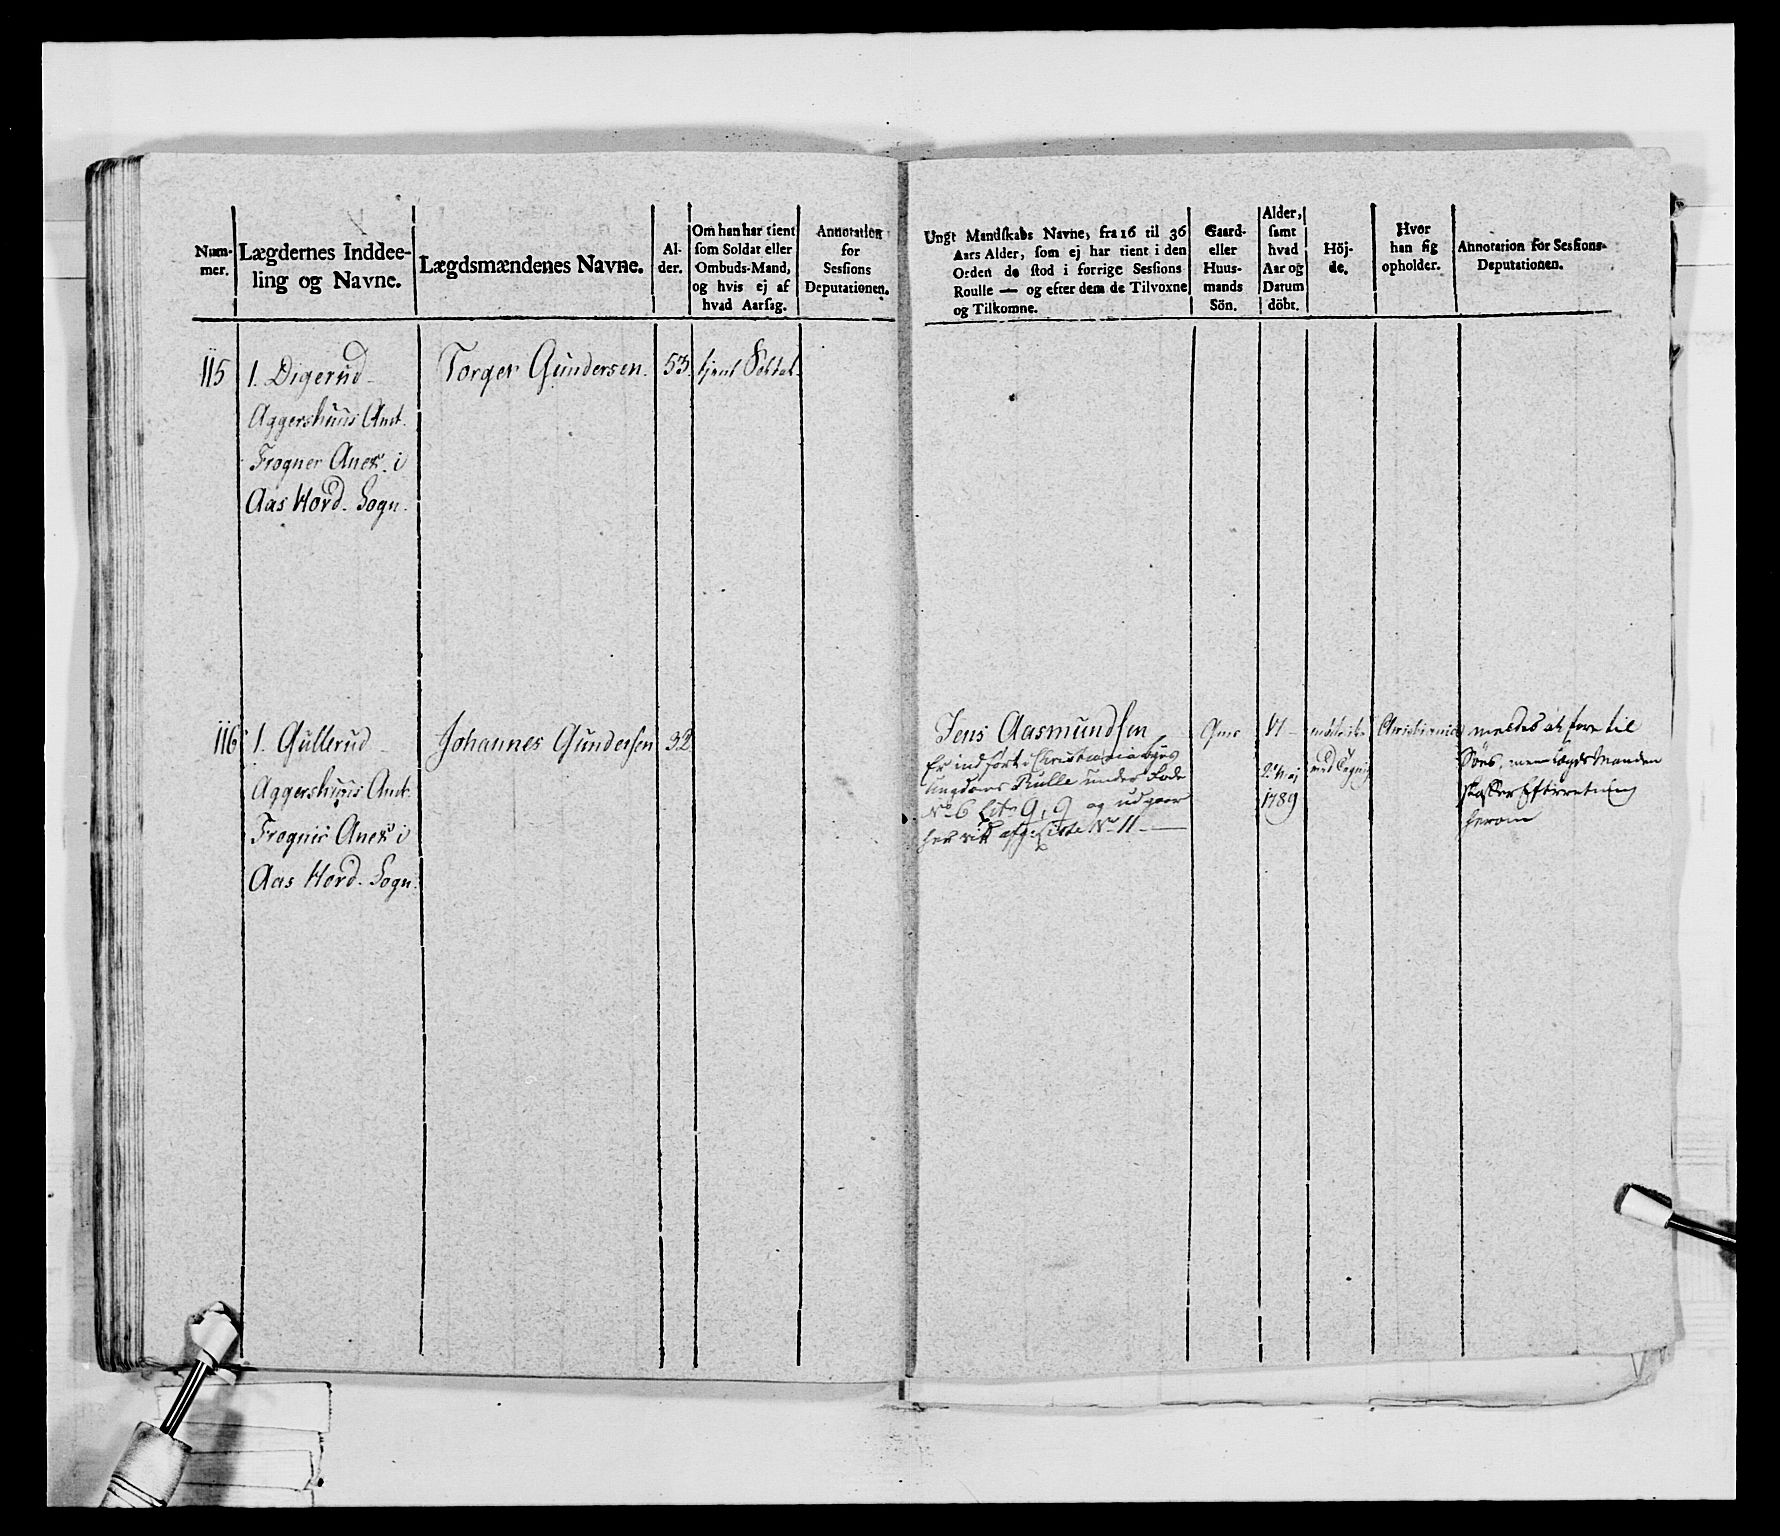 Num-
mer.
Lægdernes Inddee-
ling og Navne.
Lægdsmændenes Navne.
Al-
der.
Om han har tient
som Soldat eller
Ombuds-Mand,
og hvis ej af
hvad Aarsag.
Annotation
for
Sessions
Deputationen.
115
1. Digerud
Aggershuus Amt.
Frogner Anex. i
Aas Hovd. Sogn.
Torger Gundersen.
53.
tjent Soldat.
116
1. Gullerud
Aggershuus Amt.
Frogner Anex i
Aas Hovd. Sogn.
Johannes Gundersen
32
Ungt Mandskabs Navne, fra 16 til 36
Aars Alder, som ej har tient i den
Orden de stod i forrige Sessions
Roulle — og efter dem de Tilvoxne
og Tilkomne.
Gaard-
eller
Huus-
mands
Sön.
Alder,
samt
hvad
Aar og
Datum
döbt.
Höj-
de.
Hvor
han sig
opholder.
Annotation for Sessions-
Deputationen.
Jens Aasmundsen
Er indført i Christiania Byes
Ungdoms Rulle under Rode
No 6 Litr 9, 9 og udgaar
her ved afg: Liste No 11 —
1789
Christiania
meldes at fare til
Søes, men Lægdsmanden
skaffer Efterretning
herom